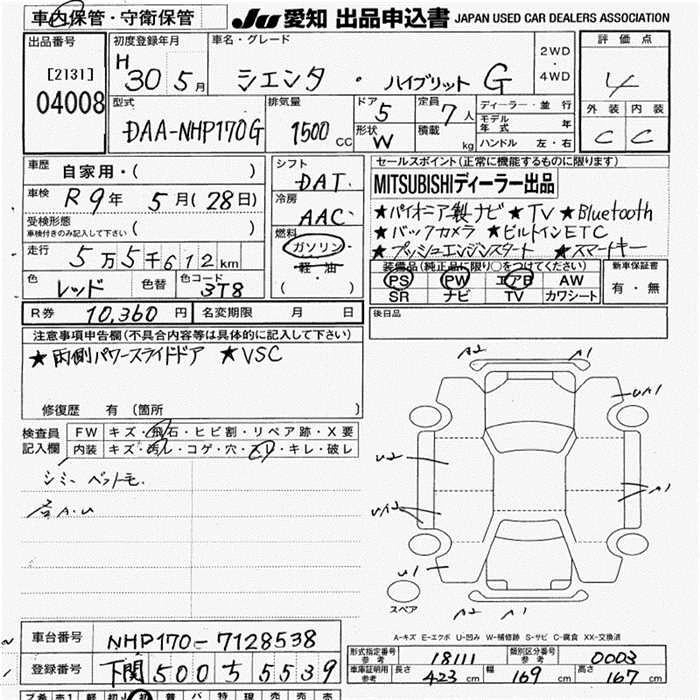 車内保管・守衛保管
JU 愛知 出品申込書 JAPAN USED CAR DEALERS ASSOCIATION
出品番号
[2131]
04008
初度登録年月
H 30 5月
車名・グレード
シエンタ ・ ハイブリット G
2WD
・
4WD
評価点
4
型式
DAA-NHP170G
排気量
1500 CC
ドア
5
形状
W
定員
7人
積載
kg
ディーラー・並行
モデル年式 年
ハンドル 左・右
外装 内装
C C
車歴 自家用・( )
車検 R9年 5月(28日)
受検形態
車検付きのみ記入して下さい ( )
走行 5万5千612km
色 レッド 色替 色コード 3T8
シフト
DAT
冷房
AAC
燃料
ガソリン
軽油
( )
セールスポイント(正常に機能するものに限ります)
MITSUBISHIディーラー出品
★パイオニア製ナビ ★TV ★Bluetooth
★バックカメラ ★ビルトインETC
★プッシュエンジンスタート ★スマートキー
装備品(純正品に限り○をつけてください)
PS PW エアB AW
SR ナビ TV カワシート
新車保証書
有・無
R券 10,360円 名変期限 月 日
後日品
注意事項申告欄(不具合内容等は具体的に記入して下さい)
★両側パワースライドドア ★VSC
修復歴 有 〔箇所 〕
検査員
記入欄
FW キズ・飛石・ヒビ割・リペア跡・X要
内装 キズ・汚レ・コゲ・穴・スレ・キレ・破レ
シミ
A.U
A2 A1
UA1
U2
A1
UA2
U1
A2 A1
スペア
A-キズ E-エクボ U-凹み W-補修跡 S-サビ C-腐食 XX-交換済
車台番号 NHP170-7128538
登録番号 下関500ち5539
形式指定番号
参考
18111
類別区分番号
参考
0003
車庫証明用
参考
長さ 423cm 幅 169cm 高さ 167cm